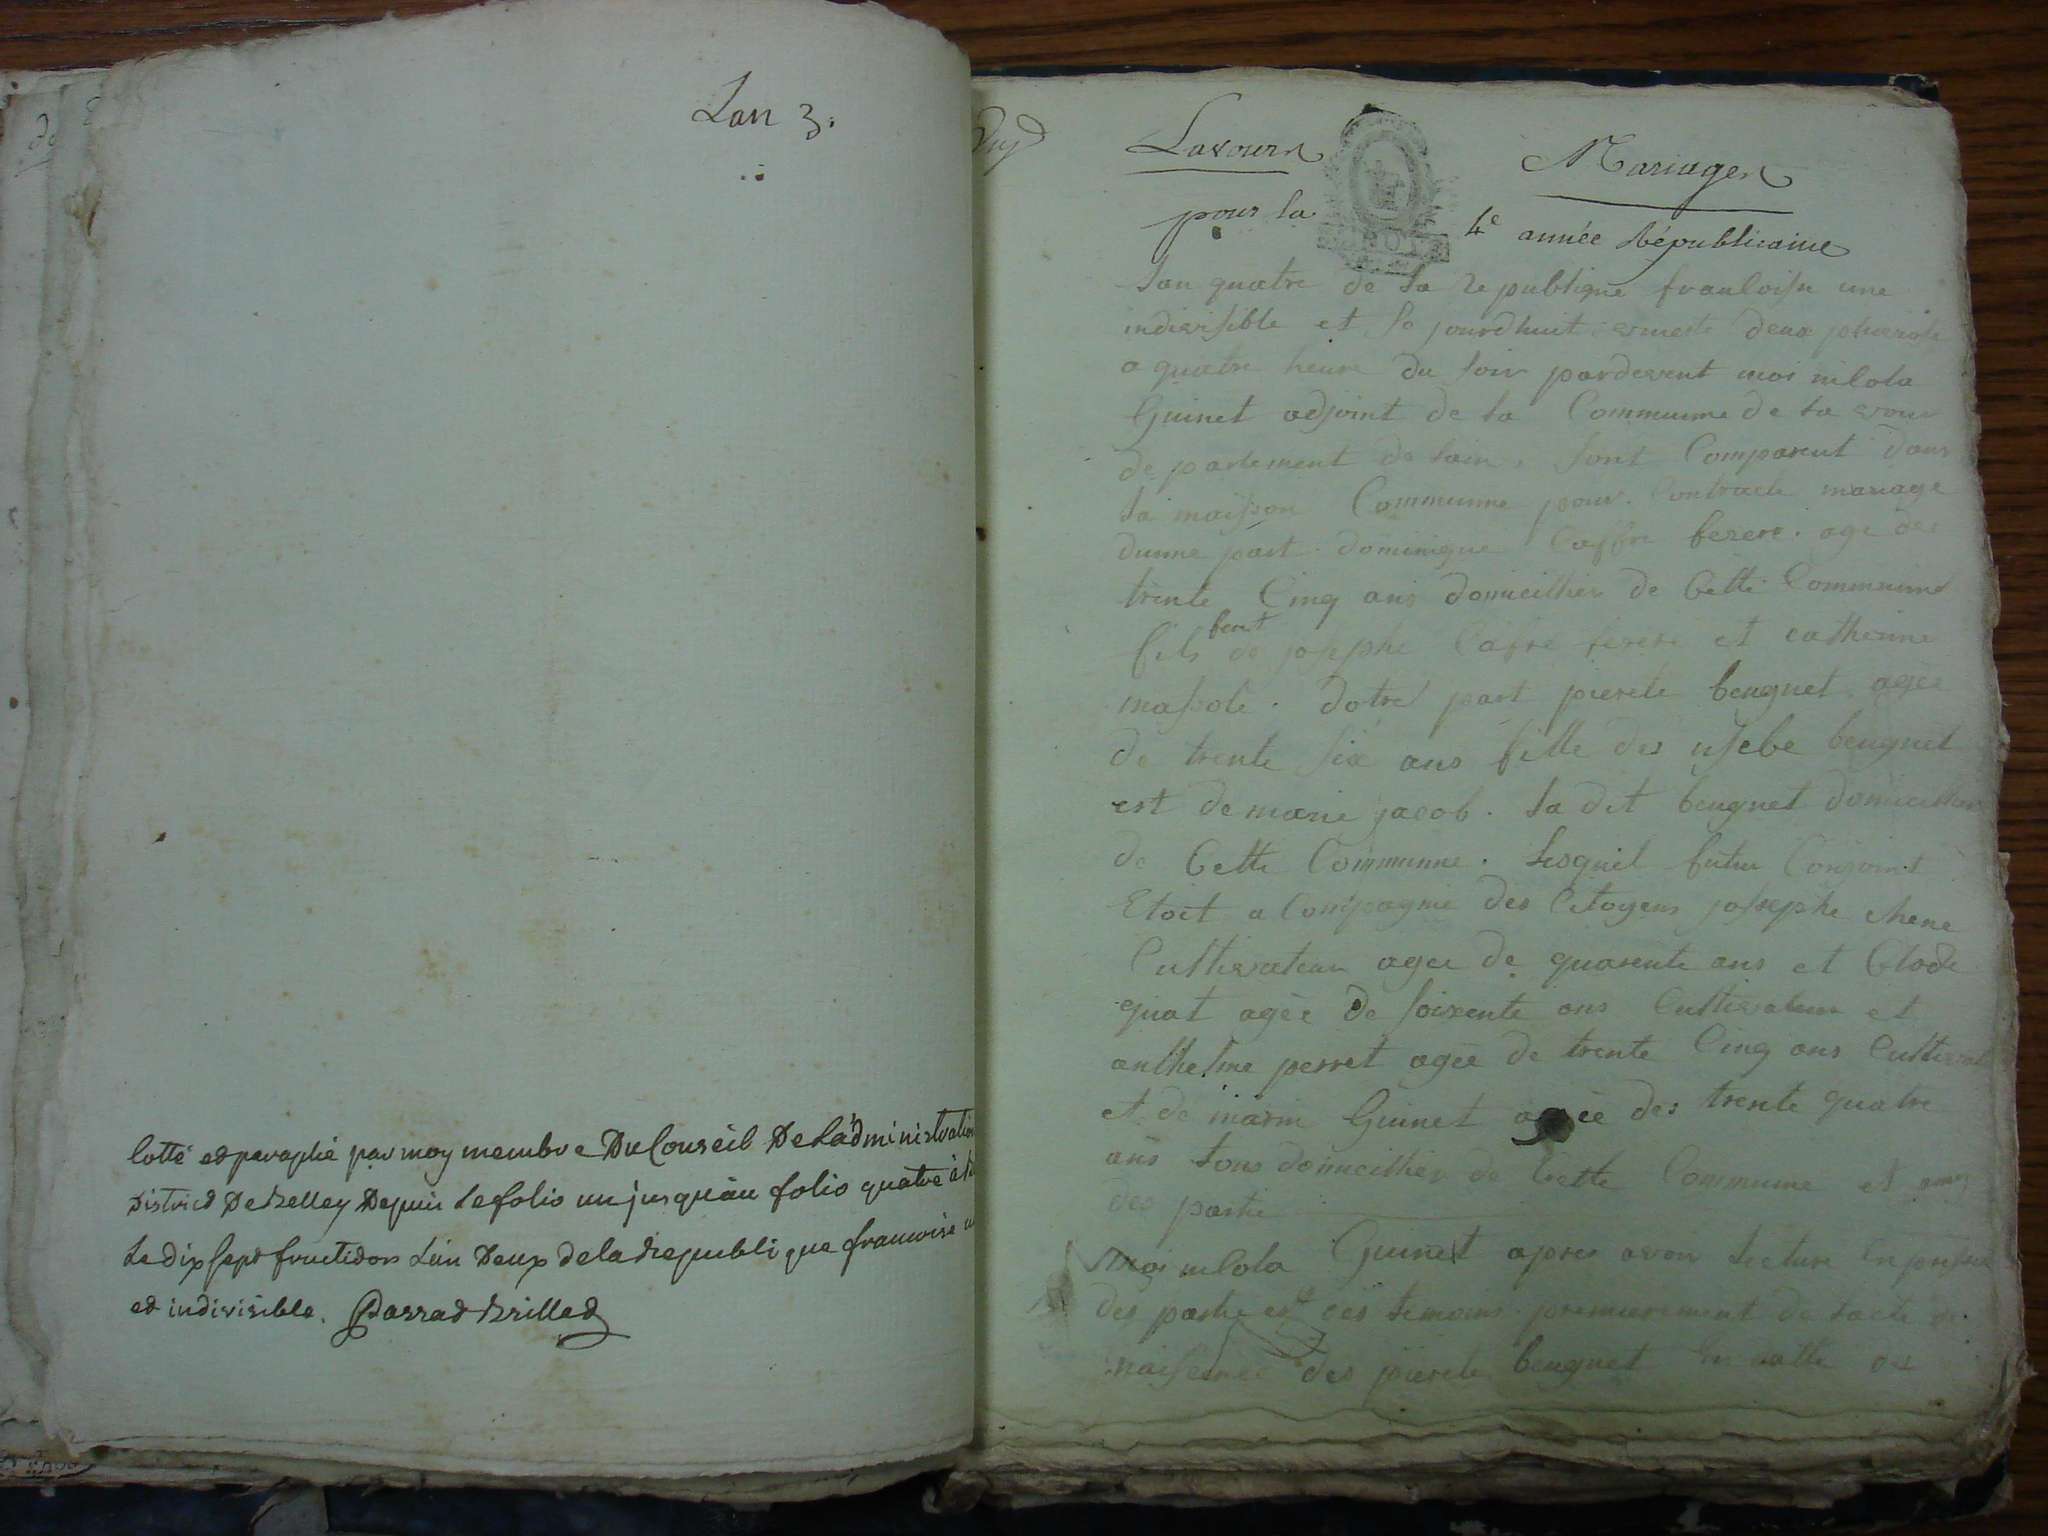 Lan 3.
Cotté et paraphé par moy membre Du Conseil De Ladministration
District De Belley Depuis le folio un jusquau folio quatre
Le dix sept fructidor Lan Deux de la republique francoise
et indivisible. Parrad Brillad
Lavours Mariages
pour la 4e année Républicaine
Lan quatre de la republique francloisse une
indivisible et le jourdhuit deux
a quatre heure du soir pardevent moi nilola
Guinet adjoint de la Commune de la vour
de partement de lain. sont Comparent dans
la maison Communne pour Contracte mariage
dunne part dominique age de
trente Cinq ans domicillier de Cette Commune
fils de josephe et catherine
masole. dotre part pierete beugnet agée
de trente six ans fille des usebe beugnet
est de marie jacob. la dit beugnet domicillier
de Cette Communne. lesquel futur Conjoint
Etoit a Compagnie des Citoyens josephe chene
Cultivateur agee de quarente ans et Clode
quat agée de soixente ans Cultivateur et
anthelme perret agée de trente Cinq ans Cultivat
et de marin Guinet agée des trente quatre
ans tous domicillier de Cette Commune et
des partie
moi nilola Guinet apres avoir lecture En
des partie et ces temoins premierement de lacte de
naissence des pierete beugnet